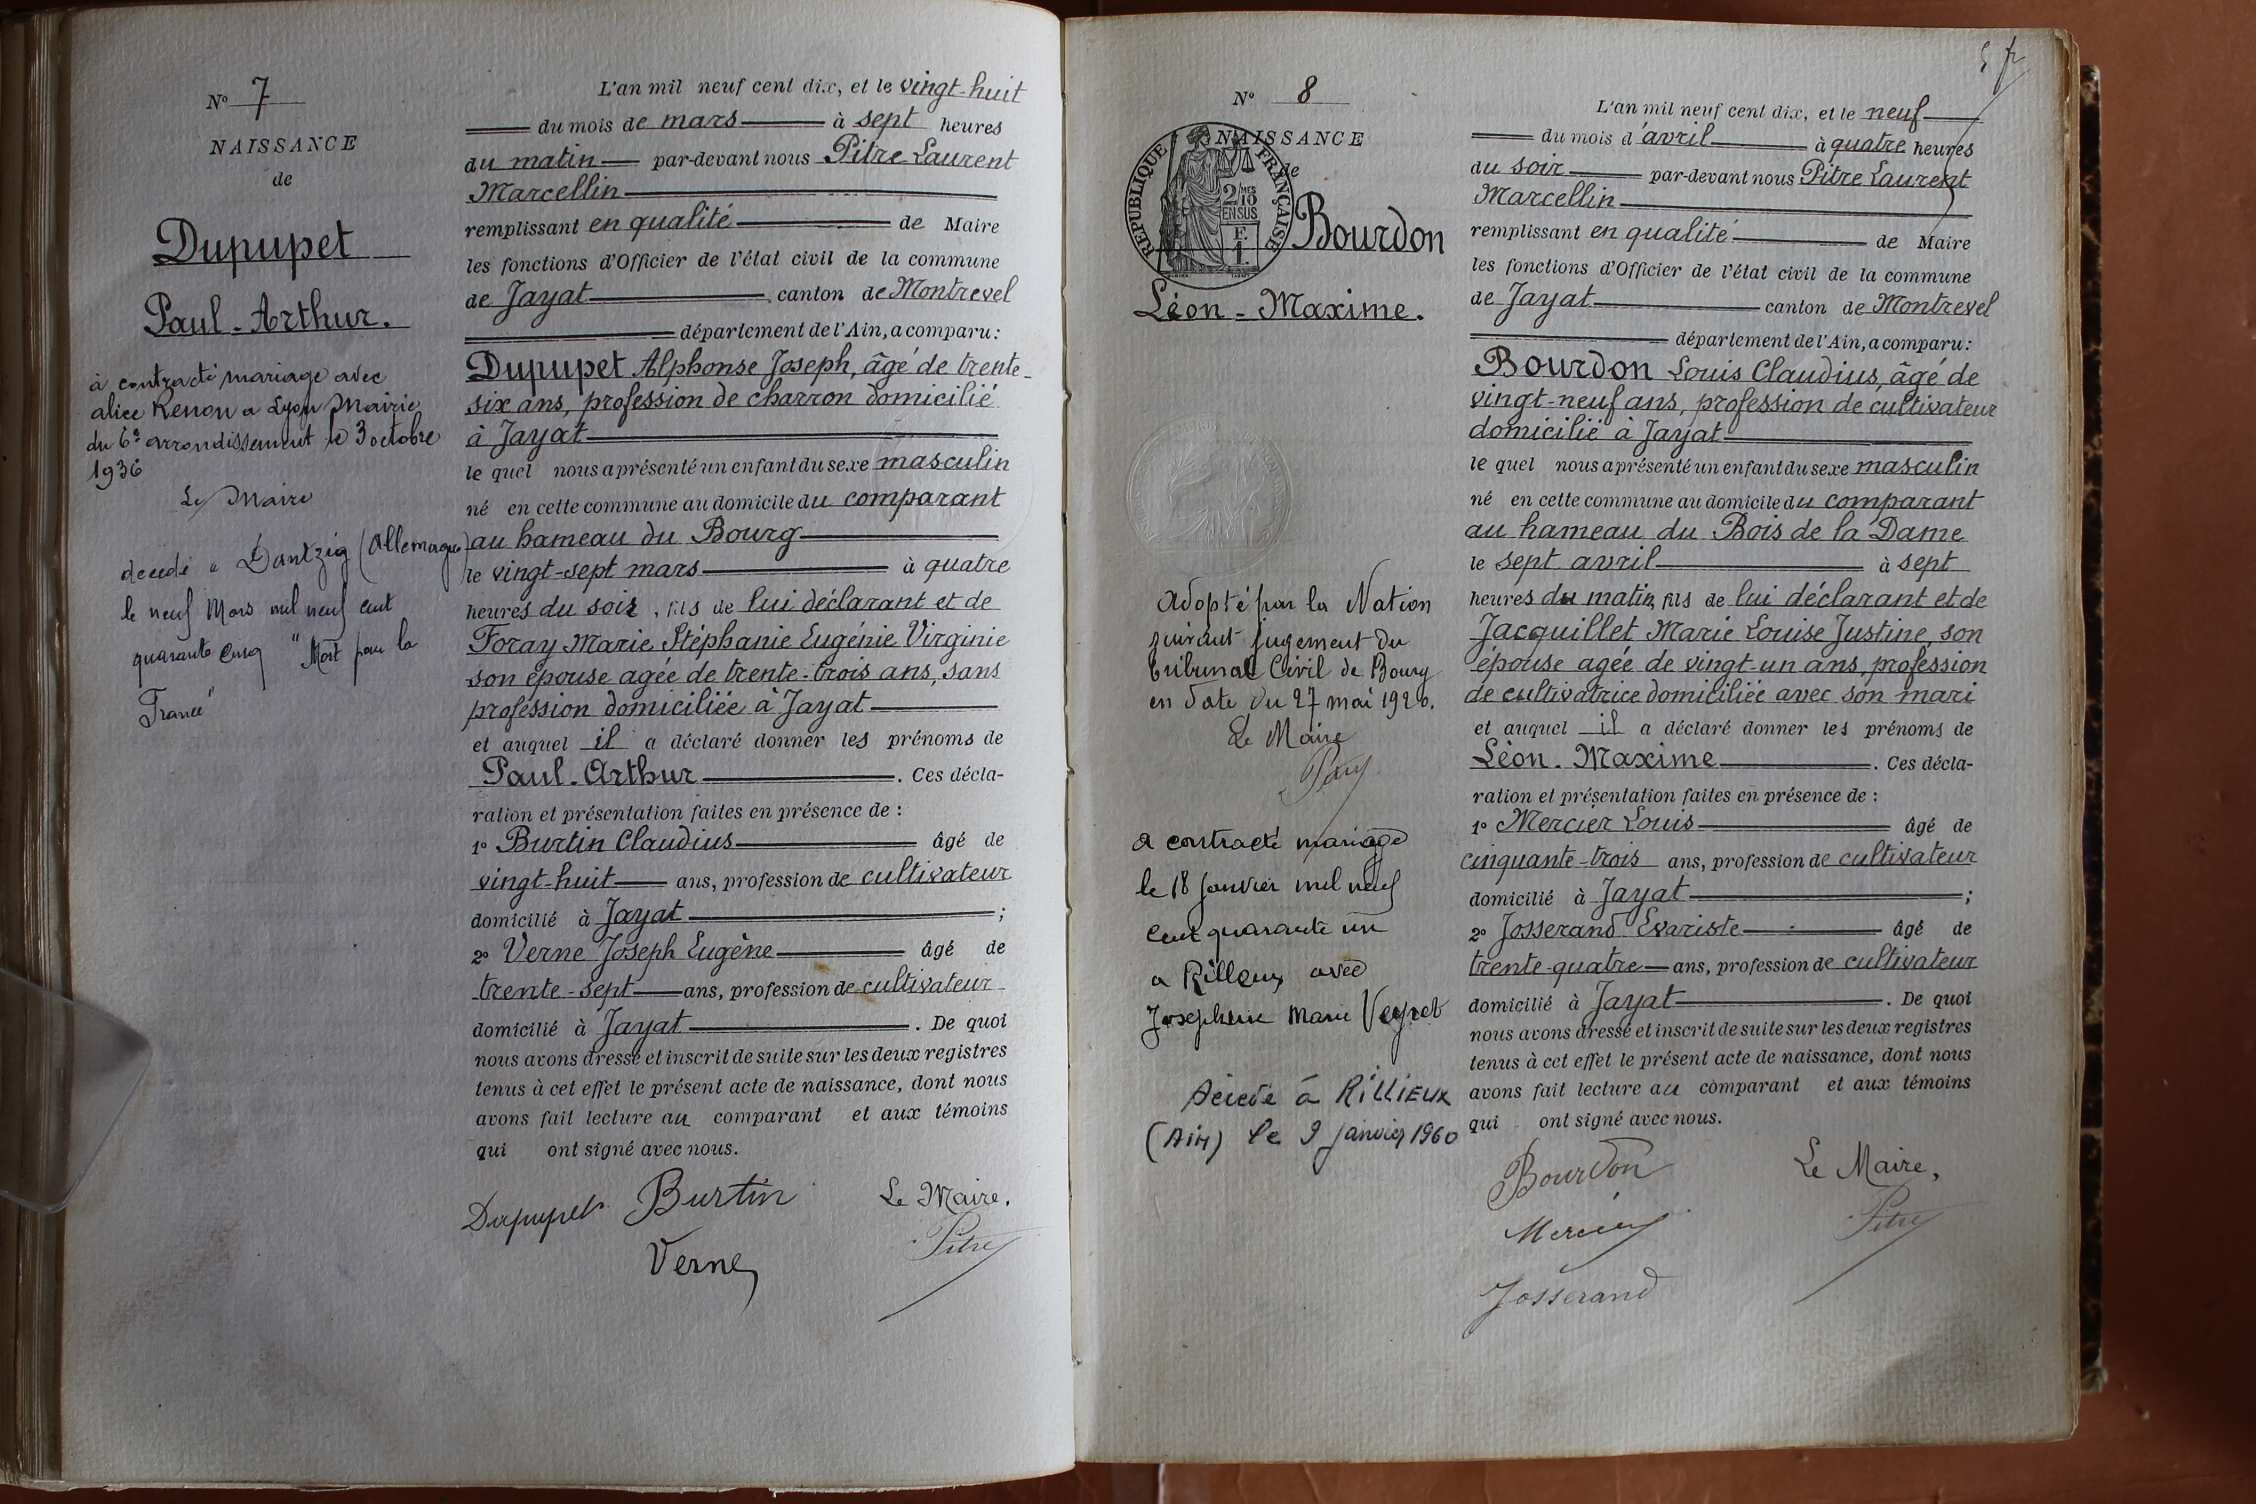 N° 7
NAISSANCE
de
Dupupet
Paul-Arthur.
à contracté mariage avec
alice Renon a Lyon Mairie
du 6e arrondissement le 3 octobre
1936
Le Maire
décédé à Dantzig (Allemagne)
le neuf Mars mil neuf cent
quarante cinq "Mort pour la
France"
L'an mil neuf cent dix, et le vingt-huit
du mois de mars à sept heures
du matin par-devant nous Pitre Laurent
Marcellin
remplissant en qualité de Maire
les fonctions d'Officier de l'état civil de la commune
de Jayat canton de Montrevel
département de l'Ain, a comparu:
Dupupet Alphonse Joseph, âgé de trente-
six ans, profession de charron domicilié
à Jayat
le quel nous a présenté un enfant du sexe masculin
né en cette commune au domicile du comparant
au hameau du Bourg
le vingt-sept mars à quatre
heures du soir, fils de lui déclarant et de
Foray Marie Stéphanie Eugénie Virginie
son épouse agée de trente-trois ans, sans
profession domiciliée à Jayat
et auquel il a déclaré donner les prénoms de
Paul-Arthur. Ces décla-
ration et présentation faites en présence de :
1° Burtin Claudius âgé de
vingt-huit ans, profession de cultivateur
domicilié à Jayat ;
2° Verne Joseph Eugène âgé de
trente-sept ans, profession de cultivateur
domicilié à Jayat. De quoi
nous avons dressé et inscrit de suite sur les deux registres
tenus à cet effet le présent acte de naissance, dont nous
avons fait lecture au comparant et aux témoins
qui ont signé avec nous.
Dupupet Burtin Le Maire.
Pitre
Verne
5 fr
N° 8
NAISSANCE
de
RÉPUBLIQUE FRANÇAISE
2/10 MES
EN SUS
F.
1.
Bourdon
Léon-Maxime.
Adopté par la Nation
suivant jugement du
tribunal Civil de Bourg
en date du 27 mai 1920.
Le Maire
a contracté mariage
le 18 Janvier mil neuf
cent quarante un
a Rillieux avec
Josephine Marie Veyret
Décédé à RilliEUX
(Ain) le 9 janvier 1960
L'an mil neuf cent dix, et le neuf
du mois d'avril à quatre heures
du soir par-devant nous Pitre Laurent
Marcellin
remplissant en qualité de Maire
les fonctions d'Officier de l'état civil de la commune
de Jayat canton de Montrevel
département de l'Ain, a comparu:
Bourdon Louis Claudius, âgé de
vingt-neuf ans, profession de cultivateur
domicilié à Jayat
le quel nous a présenté un enfant du sexe masculin
né en cette commune au domicile du comparant
au hameau du Bois de la Dame
le sept avril à sept
heures du matin, fils de lui déclarant et de
Jacquillet Marie Louise Justine, son
épouse agée de vingt-un ans, profession
de cultivatrice domiciliée avec son mari
et auquel il a déclaré donner les prénoms de
Léon-Maxime. Ces décla-
ration et présentation faites en présence de :
1° Mercier Louis âgé de
cinquante-trois ans, profession de cultivateur
domicilié à Jayat ;
2° Josserand Evariste âgé de
trente-quatre ans, profession de cultivateur
domicilié à Jayat. De quoi
nous avons dressé et inscrit de suite sur les deux registres
tenus à cet effet le présent acte de naissance, dont nous
avons fait lecture au comparant et aux témoins
qui ont signé avec nous.
Bourdon Le Maire,
Mercier Pitre
Josserand